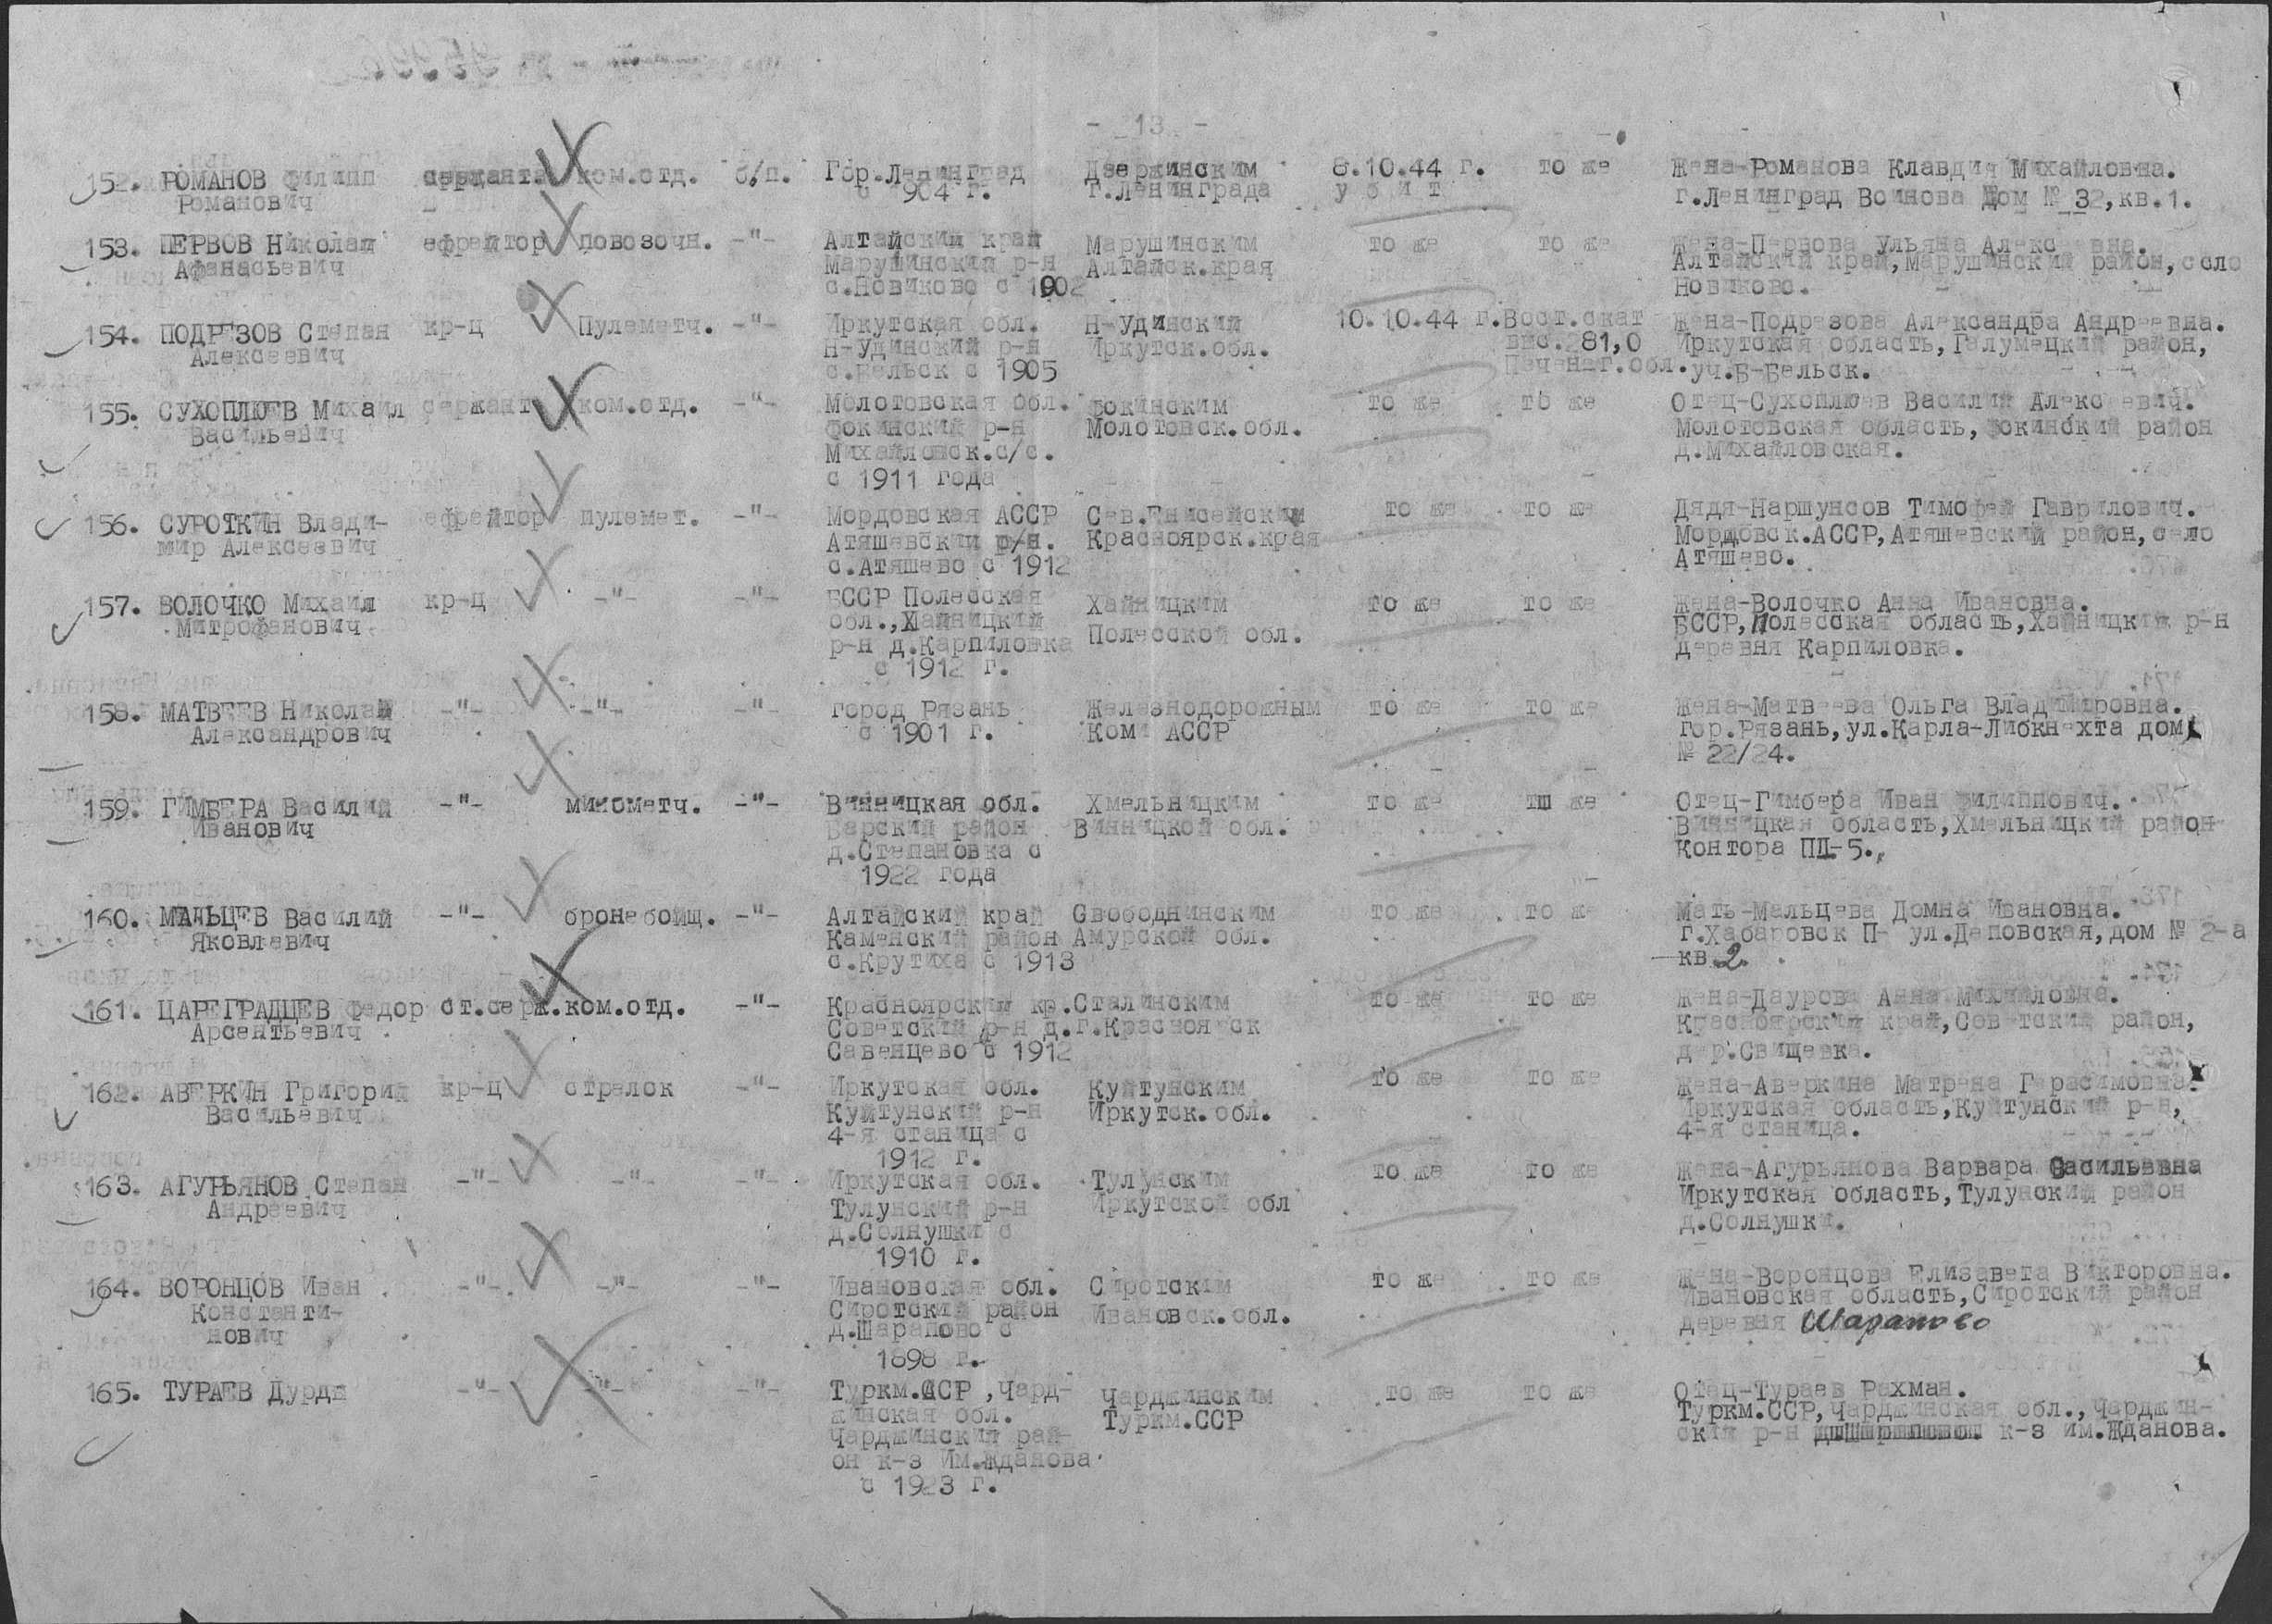 - 13 -
152. РОМАНОВ Филипп Романович сержант ком.отд. б/п. Гор.Ленинград с 904 г. Дзержинским г.Ленинграда 8.10.44 г. убит то же Жена-Романова Клавдия Михайловна.
г.Ленинград Воинова Дом № 32,кв.1.
153. ПЕРВОВ Николай Афанасьевич ефрейтор повозочн. -"- Алтайский край Марушинский р-н с.Новиково с 1902 Марушинским Алтайск.края то же то же Жена-Первова Ульяна Алексеевна.
Алтайский край,Марушинский район,село
Новиково.
154. ПОДРЕЗОВ Степан Алексеевич кр-ц Пулеметч. -"- Иркутская обл. Н-Удинский р-н с.Бельск с 1905 Н-Удинский Иркутск.обл. 10.10.44 г. Вост.скат выс.281,0 Печенег.обл. Жена-Подрезова Александра Андреевна.
Иркутская область,Галумецкий район,
уч.Б-Бельск.
155. СУХОПЛЮЕВ Михаил Васильевич сержант ком.отд. -"- Молотовская обл. Фокинский р-н Михайловск.с/с. с 1911 года Фокинским Молотовск.обл. то же то же Отец-Сухоплюев Василий Алексеевич.
Молотовская область, Фокинский район
д.Михайловская.
156. СУРОТКИН Влади-
мир Алексеевич ефрейтор пулемет. -"- Мордовская АССР Атяшевский р/н. с.Атяшево с 1912 Сев.Енисейским Красноярск.края то же то же Дядя-Наршунсов Тимофей Гаврилович.
Мордовск.АССР,Атяшевский район,село
Атяшево.
157. ВОЛОЧКО Михаил Митрофанович кр-ц -"- -"- БССР Полесская обл.,Хайницкий р-н д.Карпиловка с 1912 г. Хайницким Полесской обл. то же то же Жена-Волочко Анна Ивановна.
БССР,Полесская область,Хайницкий р-н
деревня Карпиловка.
158. МАТВЕЕВ Николай Александрович -"- -"- -"- город Рязань с 1901 г. Железнодорожным Коми АССР то же то же Жена-Матвеева Ольга Владимировна.
Гор.Рязань,ул.Карла-Либкнехта дом
№ 22/24.
159. ГИМБЕРА Василий Иванович -"- минометч. -"- Винницкая обл. Барский район д.Степановка с 1922 года Хмельницким Винницкой обл. то же тш же Отец-Гимбера Иван Филиппович.
Винницкая область,Хмельницкий район
контора ПШ-5.
160. МАЛЬЦЕВ Василий Яковлевич -"- бронебойщ. -"- Алтайский край Каменский район с.Крутиха с 1913 Свободнинским Амурской обл. то же то же Мать-Мальцева Домна Ивановна.
г.Хабаровск П- ул.Деповская,дом № 2-а
кв.2.
161. ЦАРЕГРАДЦЕВ Федор Арсентьевич ст.серж. ком.отд. -"- Красноярский кр. Советский р-н д. Савенцево с 1912 Сталинским г.Красноярск то же то же Жена-Даурова Анна Михайловна.
Красноярский край,Советский район,
дер.Свищевка.
162. АВЕРКИН Григорий Васильевич кр-ц стрелок -"- Иркутская обл. Куйтунский р-н 4-я станица с 1912 г. Куйтунским Иркутск.обл. то же то же Жена-Аверкина Матрена Герасимовна.
Иркутская область,Куйтунский р-н,
4-я станица.
163. АГУРЬЯНОВ Степан Андреевич -"- -"- -"- Иркутская обл. Тулунский р-н д.Солнушки с 1910 г. Тулунским Иркутской обл то же то же Жена-Агурьянова Варвара Васильевна
Иркутская область,Тулунский район
д.Солнушки.
164. ВОРОНЦОВ Иван Константи-
нович -"- -"- -"- Ивановская обл. Сиротский район д.Шарапово с 1898 г. Сиротским Ивановск.обл. то же то же Жена-Воронцова Елизавета Викторовна.
Ивановская область,Сиротский район
деревня Шарапово
165. ТУРАЕВ Дурды -"- -"- -"- Туркм.ССР,Чард-
жинская обл. Чарджинский рай-
он к-з Им.Жданова с 1923 г. Чарджинским Туркм.ССР то же то же Отец-Тураев Рахман.
Туркм.ССР,Чарджинская обл.,Чарджин-
ский р-н к-з им.Жданова.